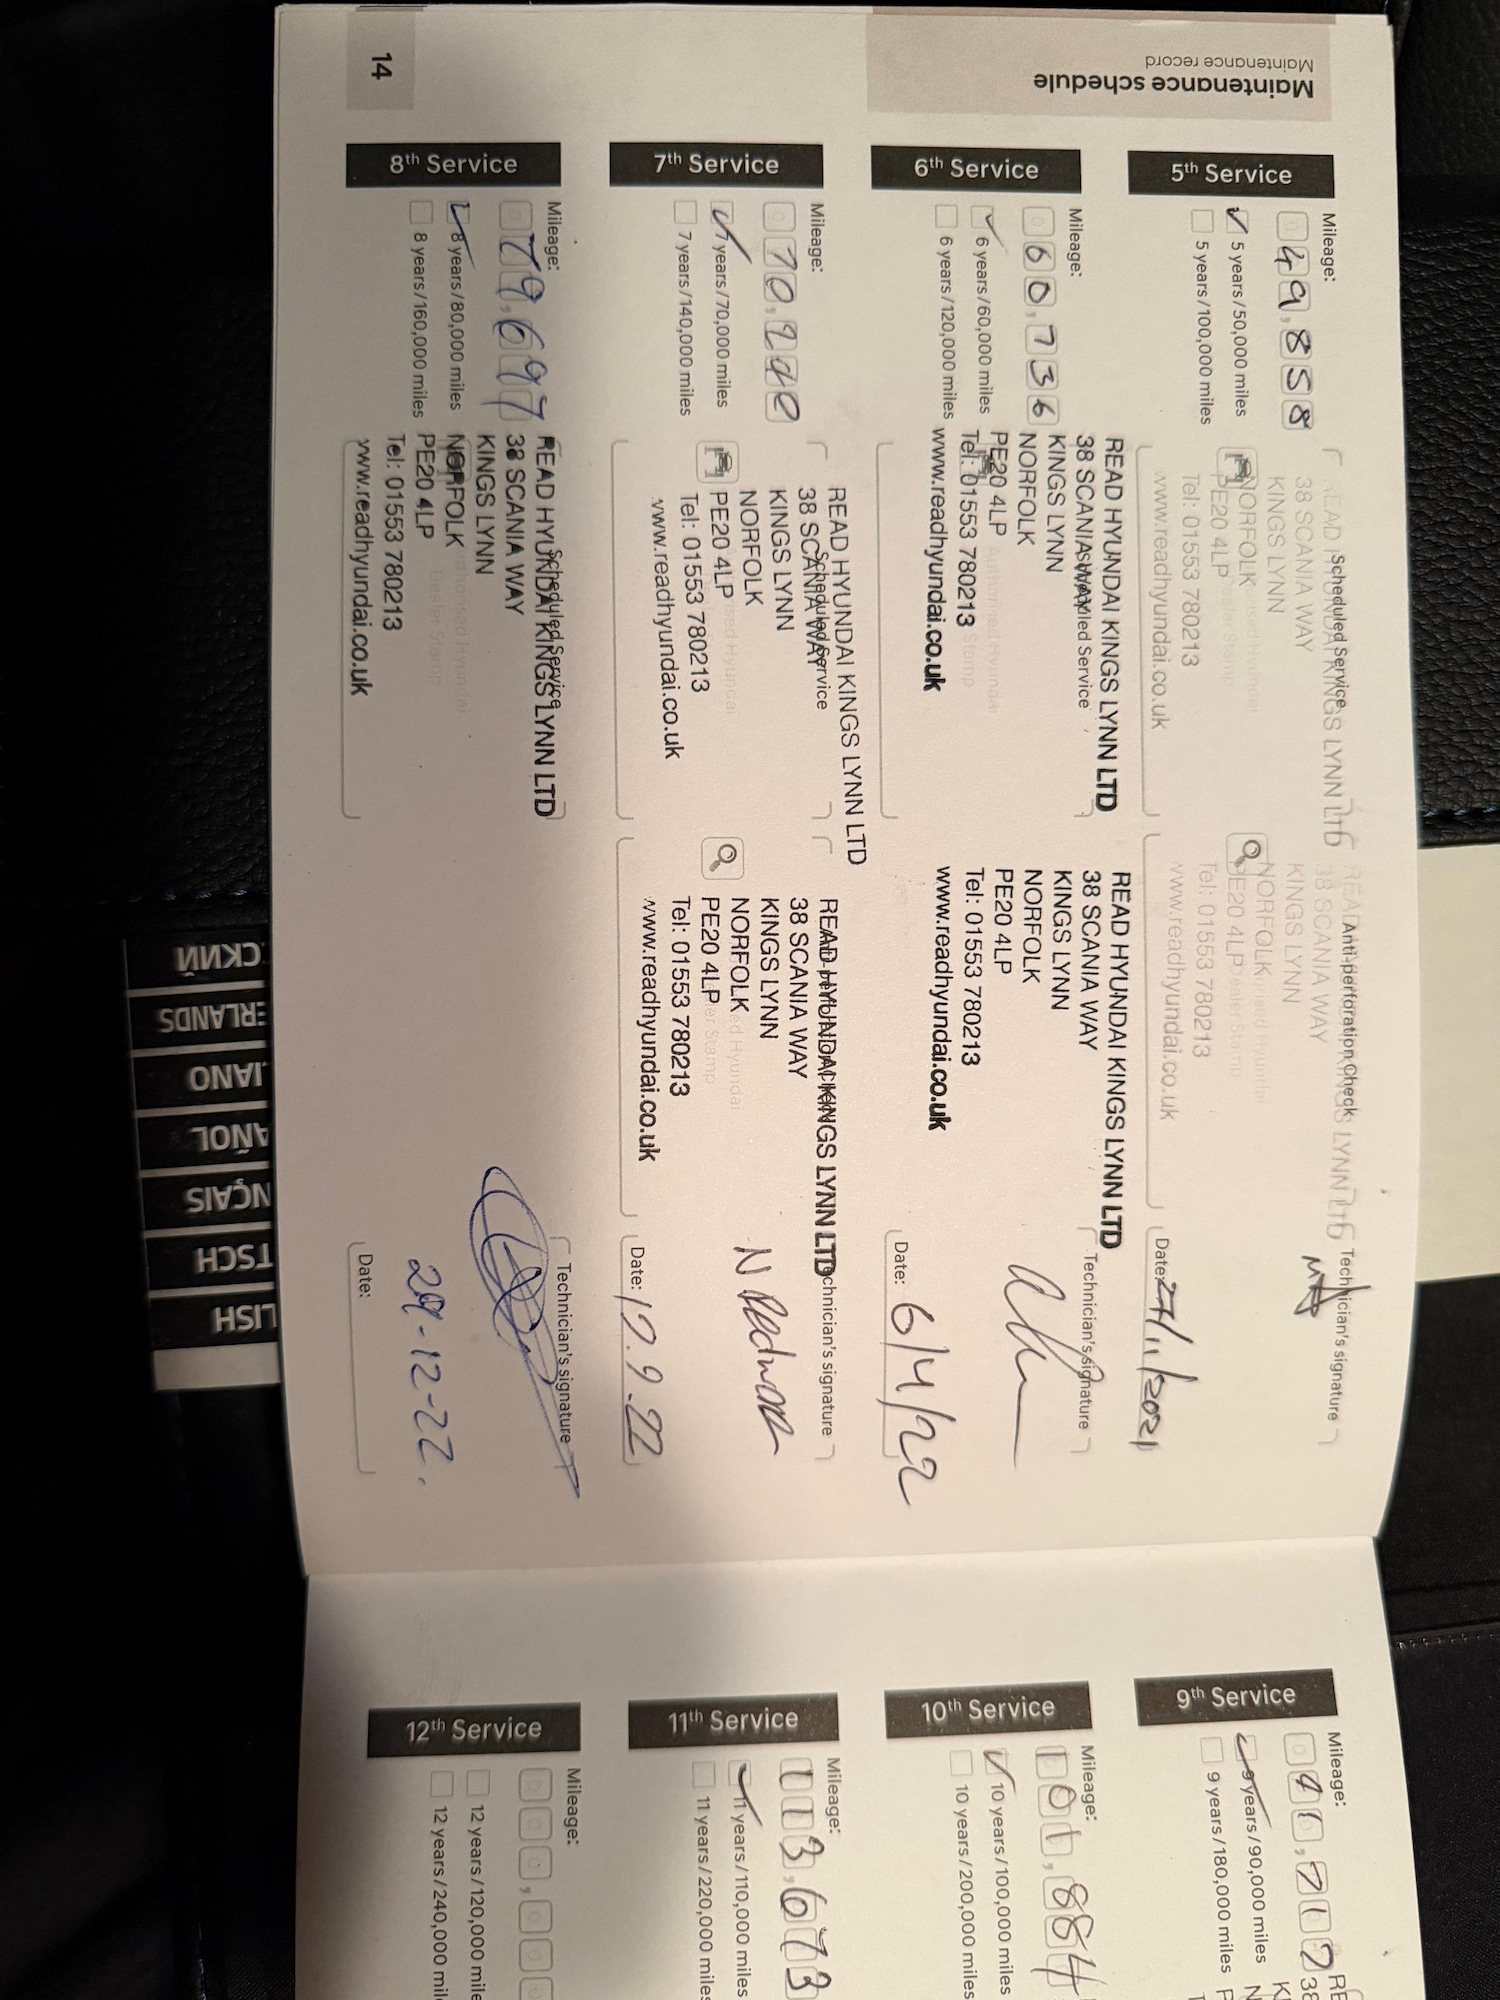 Maintenance schedule
Maintenance record
5th Service
Mileage:
49,858
5 years/50,000 miles
5 years/100,000 miles
Scheduled Service
READ HYUNDAI KINGS LYNN LTD
38 SCANIA WAY
KINGS LYNN
NORFOLK
PE20 4LP
Tel: 01553 780213
www.readhyundai.co.uk
Anti-perforation Check
READ HYUNDAI KINGS LYNN LTD
38 SCANIA WAY
KINGS LYNN
NORFOLK
PE20 4LP
Tel: 01553 780213
www.readhyundai.co.uk
Technician's signature
Date: 27/11/2021
6th Service
Mileage:
60,736
6 years/60,000 miles
6 years/120,000 miles
Scheduled Service
READ HYUNDAI KINGS LYNN LTD
38 SCANIA WAY
KINGS LYNN
NORFOLK
PE20 4LP
Tel: 01553 780213
www.readhyundai.co.uk
READ HYUNDAI KINGS LYNN LTD
38 SCANIA WAY
KINGS LYNN
NORFOLK
PE20 4LP
Tel: 01553 780213
www.readhyundai.co.uk
Technician's signature
Date: 6/4/22
7th Service
Mileage:
7 years/70,000 miles
7 years/140,000 miles
Scheduled Service
READ HYUNDAI KINGS LYNN LTD
38 SCANIA WAY
KINGS LYNN
NORFOLK
PE20 4LP
Tel: 01553 780213
www.readhyundai.co.uk
READ HYUNDAI KINGS LYNN LTD
38 SCANIA WAY
KINGS LYNN
NORFOLK
PE20 4LP
Tel: 01553 780213
www.readhyundai.co.uk
Technician's signature
Date: 17.9.22
8th Service
Mileage:
79,697
8 years/80,000 miles
8 years/160,000 miles
Scheduled Service
READ HYUNDAI KINGS LYNN LTD
38 SCANIA WAY
KINGS LYNN
NORFOLK
PE20 4LP
Tel: 01553 780213
www.readhyundai.co.uk
Technician's signature
29-12-22.
Date:
14
9th Service
Mileage:
9 years/90,000 miles
9 years/180,000 miles
10th Service
Mileage:
101,884
10 years/100,000 miles
10 years/200,000 miles
11th Service
Mileage:
113,673
11 years/110,000 miles
11 years/220,000 miles
12th Service
Mileage:
12 years/120,000 mile
12 years/240,000 mile
СКИЙ
ERLANDS
IANO
AÑOL
NÇAIS
TSCH
LISH